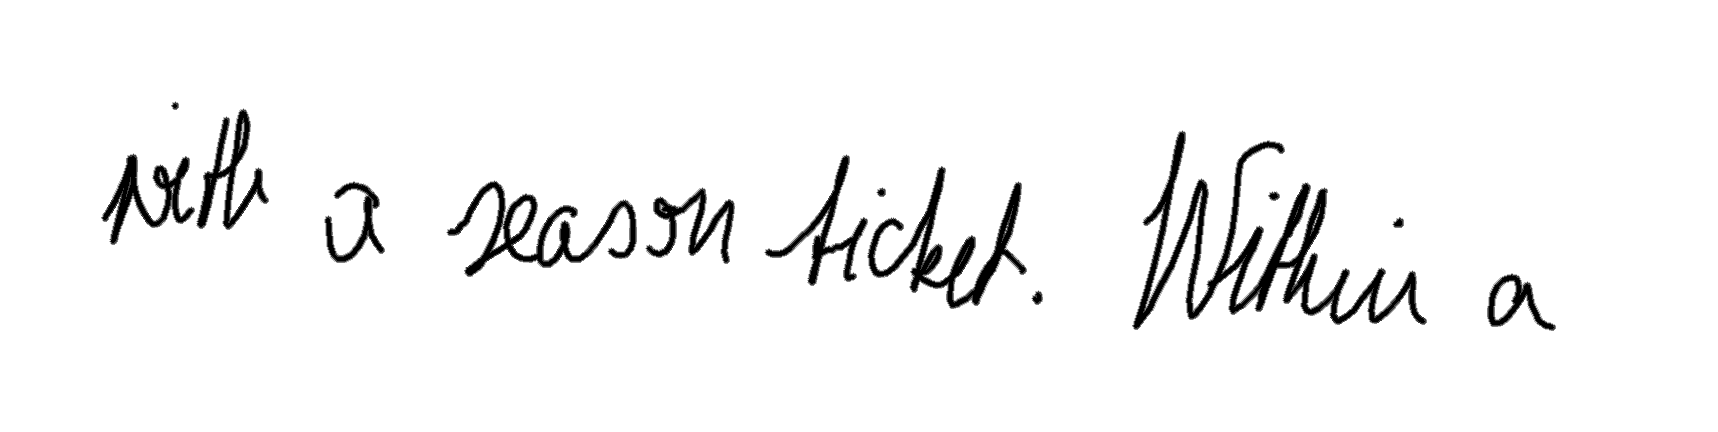 with a season ticket. Within a